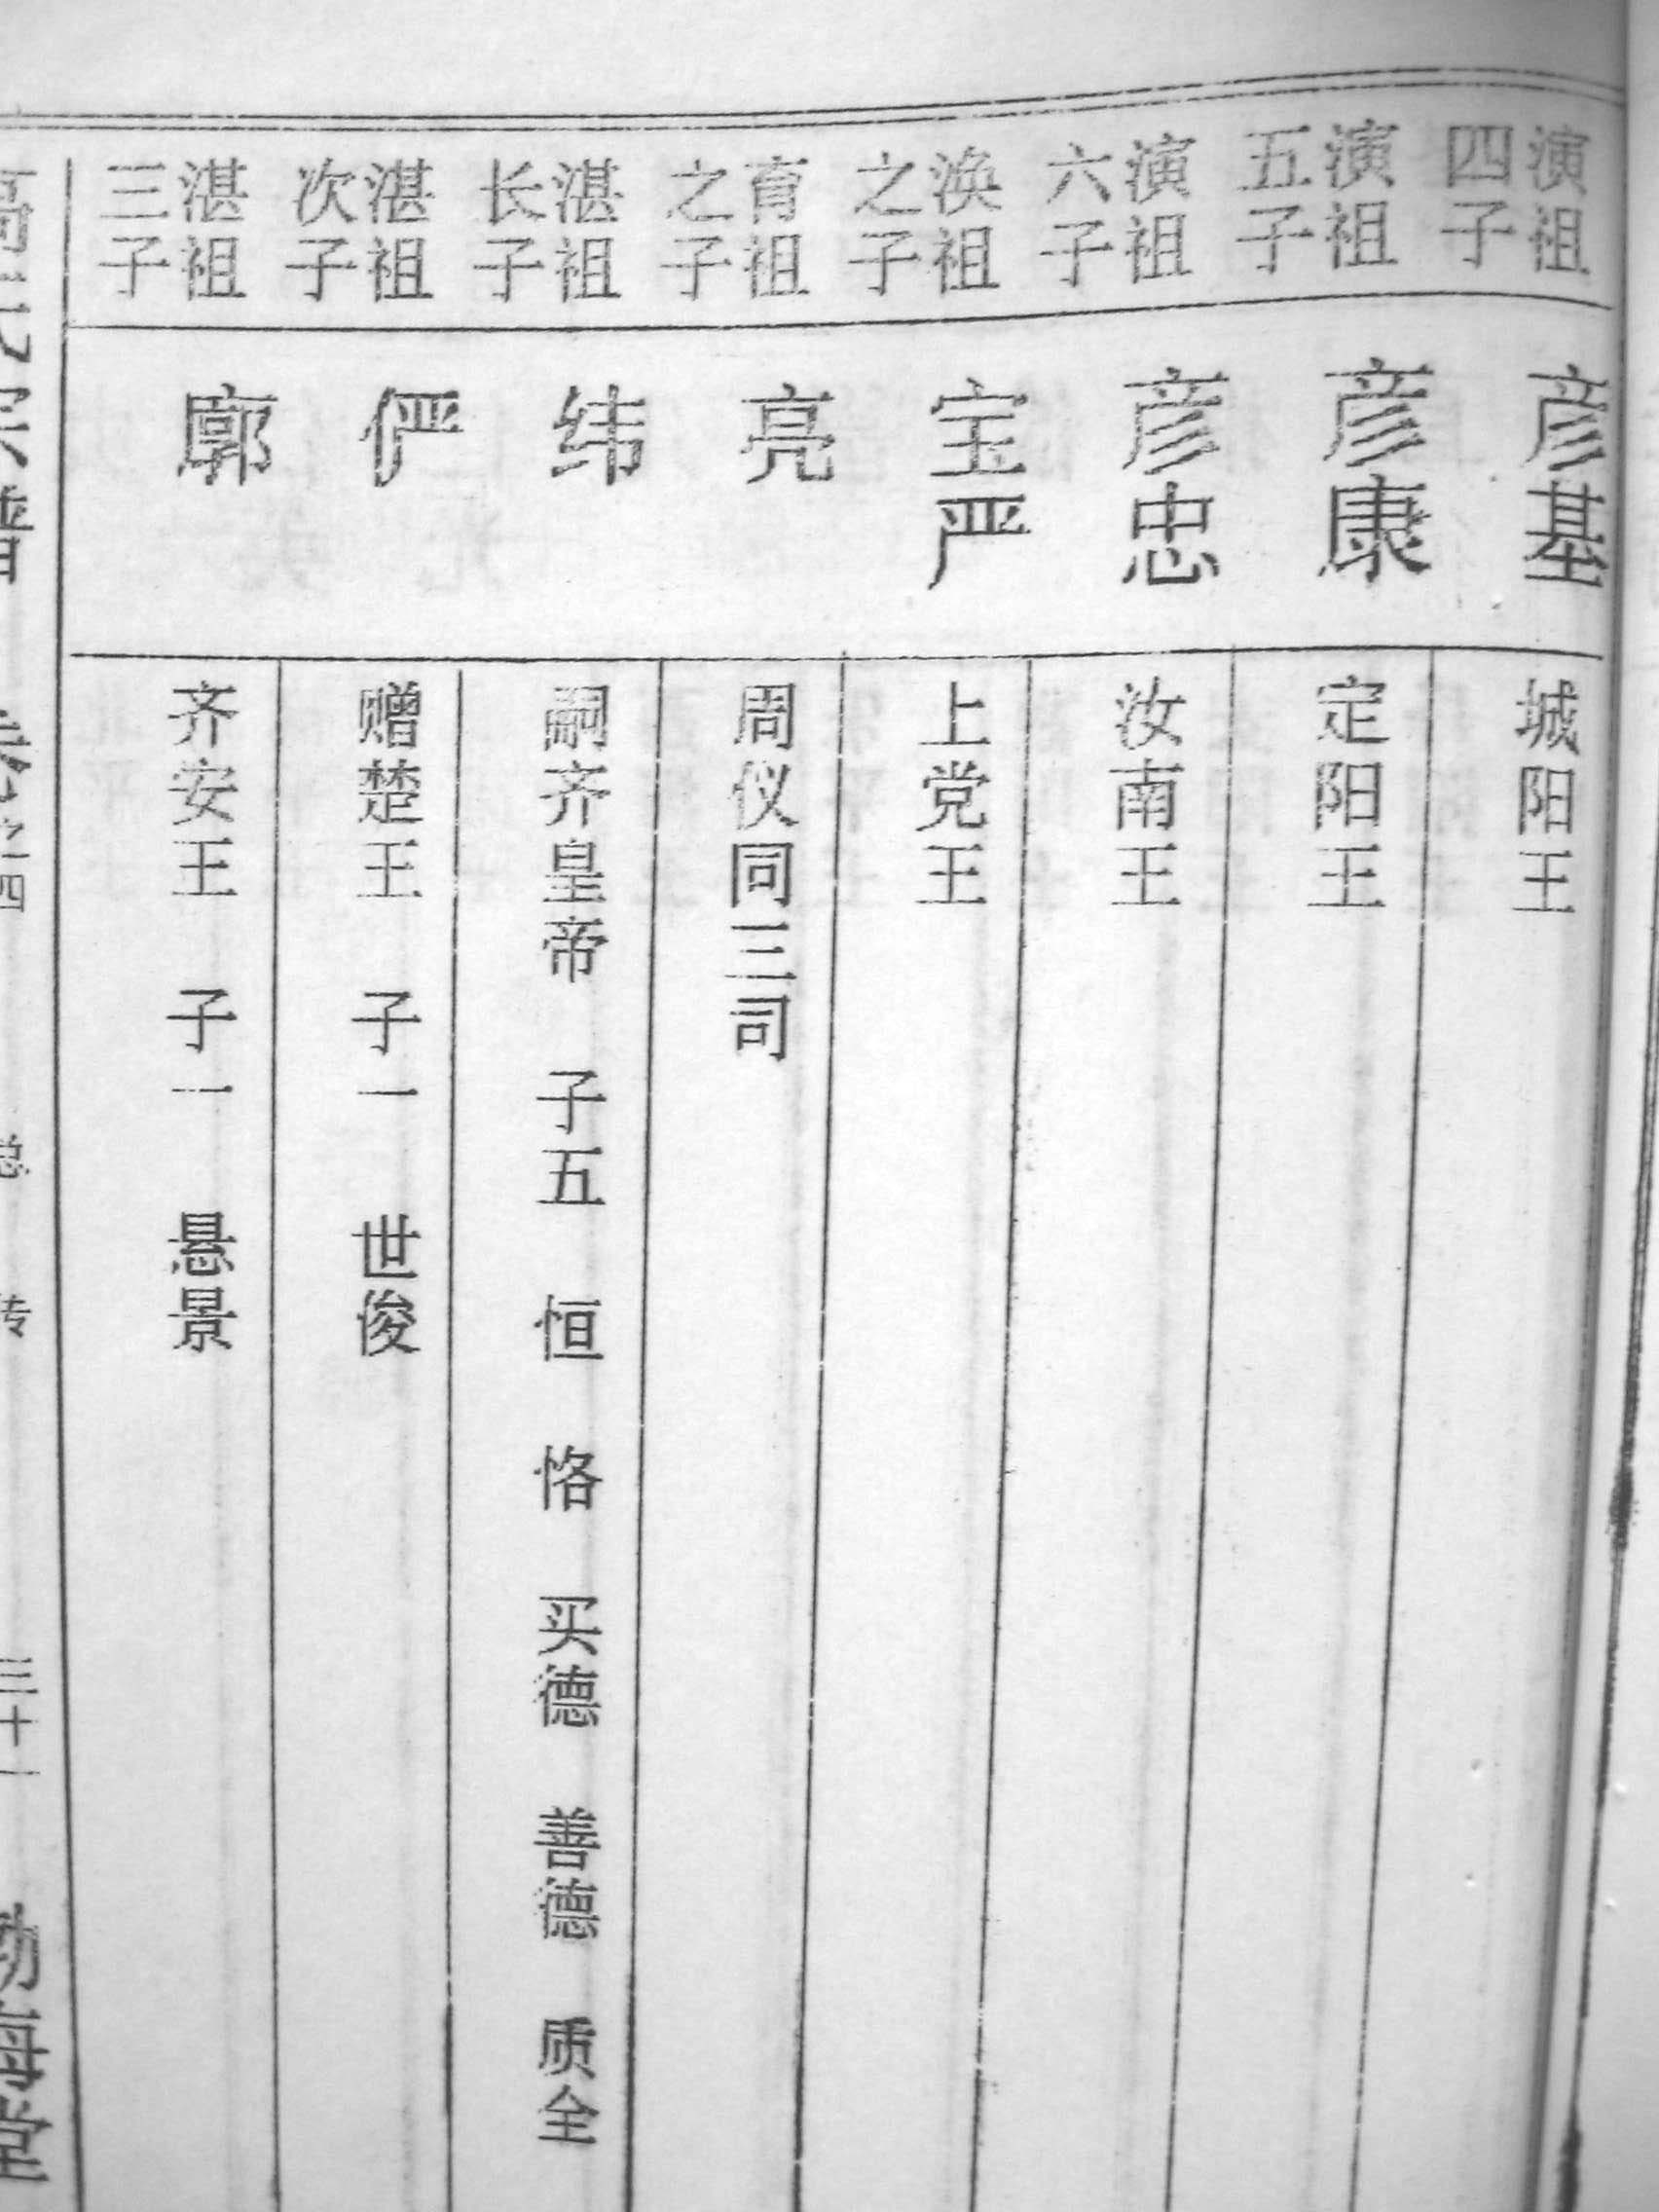 演祖
四子
彦基
城阳王
演祖
五子
彦康
定阳王
演祖
六子
彦忠
汝南王
涣祖
之子
宝严
上党王
育祖
之子
亮
周仪同三司
湛祖
长子
纬
嗣齐皇帝 子五 恒 恪 买德 善德 质全
湛祖
次子
俨
赠楚王 子一 世俊
湛祖
三子
廓
齐安王 子一 悬景
总 传